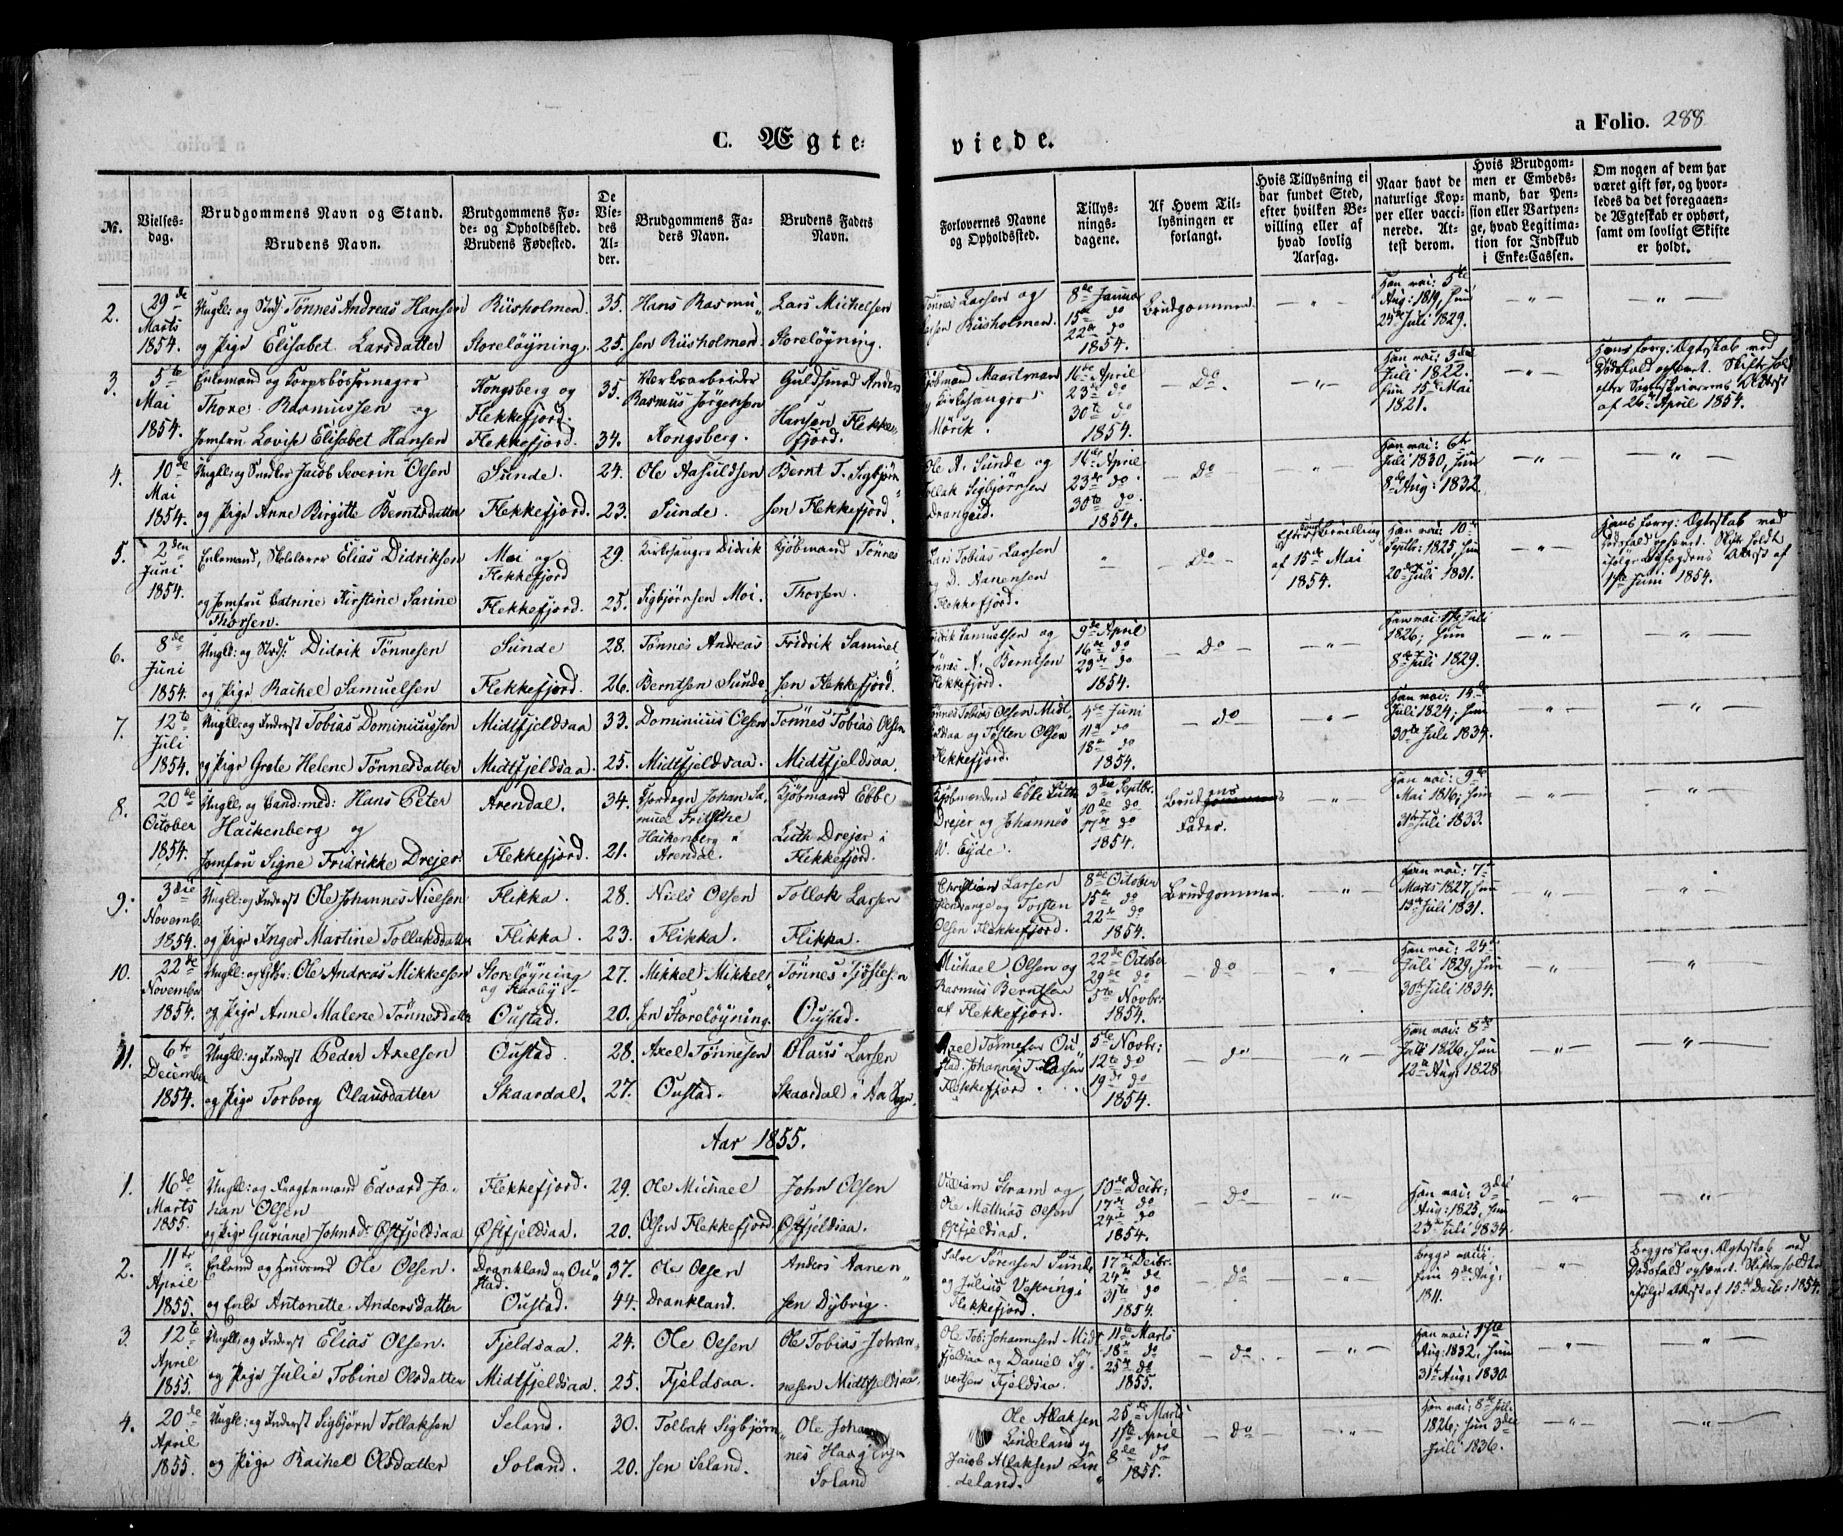 C. Ægte-
viede.
a Folio. 288
№.
Vielses-
dag.
Brudgommens Navn og Stand.
Brudens Navn.
Brudgommens Fø-
de- og Opholdsted.
Brudens Fødested.
De
Vie-
des
Al-
der.
Brudgommens Fa-
ders Navn.
Brudens Faders
Navn.
Forlovernes Navne
og Opholdssted.
Tillys-
nings-
dagene.
Af Hvem Til-
lysningen er
forlangt.
Hvis Tillysning ei
har fundet Sted,
efter hvilken Be-
villing eller af
hvad lovlig
Aarsag.
Naar havt de
naturlige Kop-
per eller vacci-
nerede. At-
test derom.
Hvis Brudgom-
men er Embeds-
mand, har Pen-
sion eller Vartpen-
ge, hvad Legitima-
tion for Indskud
i Enke-Cassen.
Om nogen af dem har
været gift før, og hvor-
ledes da det foregaaen-
de Ægteskab er ophørt,
samt om lovligt Skifte
er holdt.
2.
29de
Marts
1854.
Ungk: og Tønnes Andreas Hansen
og Pige Elisabet Larsdatter
Riisholmen
Storeløyning.
35.
25.
Hans Rasmu
sen Riisholmen
Lars Michelsen
Storeløyning.
Tønnes Larsen og
Larsen Riisholmen.
8de Januar
15de do
22de do
1854.
Brudgommen
Han vac: 5te
Aug: 1819, hun
24de Juli 1829.
3.
5te
Mai
1854.
Enkemand og
Thore Rasmussen og
Jomfru Lovise Elisabet Hansen
Kongsberg og
Flekkefjord.
Flekkefjord.
35.
34.
Værksarbeider
Rasmus Jørgensen
Kongsberg.
Guldsmed Anders
Hansen Flekke-
fjord.
Kjøbmand Maartman
og Kirkesanger
Mørik.
16de April
23de do
30te do
1854.
Do
Han vac: 3die
Juli 1822.
hun 15de Mai
1821.
Hans foreg: Ægteskab ved
Dødsfald ophævet. Skifte holdt
efter Sorenskriverens Attest
af 26de April 1854.
4.
10de
Mai
1854.
Ungk: og Snedker Jacob Severin Olsen
og Pige Anne Birgitte Berntsdatter
Sunde
Flekkefjord.
24.
23.
Ole Aasuldsen
Sunde.
Bernt T. Sigbjørn
sen Flekkefjord.
Ole A. Sunde og
Tollak Sigbjørnsen
Drangeid.
16de April
23de do
30te do
1854.
Do
Han vac: 6te
Juli 1830, hun
8de Aug: 1832.
5.
2den
Juni
1854.
Enkemand, Skolelærer Elias Didriksen
og Jomfru Catrine Kirstine Sarine
Thorsen.
Moi og
Flekkefjord
Flekkefjord.
29.
25.
Kirkesanger Didrik
Sigbjørnsen Moi.
Kjøbmand Tønnes
Thorsen.
Lars Tobias Larsen
og D. Aanensen
Flekkefjord.
Do
af 15de Mai
1854.
Han vac: 10de
Septbr: 1825, hun
20de Juli 1831.
Hans foreg: Ægteskab ved
Dødsfald ophævet. Skifte holdt
ifølge Byfogdens Attest af
1ste Juni 1854.
6.
8de
Juni
1854.
Ungk: og Didrik Tønnesen
og Pige Rachel Samuelsen
Sunde
Flekkefjord.
28.
26.
Tønnes Andreas
Berntsen Sunde.
Fridrik Samuel
sen Flekkefjord.
Fridrik Samuelsen og
Tønnes A. Berntsen
Flekkefjord.
9de April
16de do
23de do
1854.
Do
Han vac: 1ste Juli
1826; hun
8de Juli 1829.
7.
12te
Juli
1854.
Ungk: og Inderst Tobias Dominiussen
og Pige Grete Helene Tønnesdatter
Midtfjeldsaa
Midtfjeldsaa.
33.
25.
Dominius Olsen
Midtfjeldsaa.
Tønnes Tobias Olsen
Midtfjeldsaa.
Tønnes Tobias Olsen Midt-
fjeldsaa og Tosten Olsen
Flekkefjord.
4de Juni
11te do
18de do
1854.
Do
Han vac: 14de
Juli 1824; hun
30te Juli 1834.
8.
20de
October
1854.
Ungk: og Cand: med: Hans Peter
Hackenberg og
Jomfru Signe Fridrikke Drejer
Arendal.
Flekkefjord.
34.
21.
Johan Sa-
muel Fritsche
Hackenberg i
Arendal.
Kjøbmand Ebbe
Luth Drejer i
Flekkefjord.
Kjøbmændene Ebbe Luth
Drejer og Johannes
W. Eyde.
3die Septbr.
10de do
17de do
1854.
Brudens
Fader.
Han vac: 9de
Mai 1816; hun
31te Juli 1833.
9.
3die
Novemb.
1854.
Ungk: og Inderst Ole Johannes Nielsen
og Pige Inger Martine Tollaksdatter
Flikka.
Flikka.
28.
23.
Niels Olsen
Flikka.
Tollak Larsen
Flikka.
Christian Larsen
og Torsten
Olsen Flekkefjord.
8de October
15de do
22de do
1854.
Brudgommen
Han vac: 7de
Marts 1827, hun
13de Juli 1831.
10.
22de
November
1854.
Ungk: og Ole Andreas Mikkelsen
og Pige Anne Malene Tønnesdatter
Storeløyning
og
Oustad.
27.
20.
Mikkel Mikkel
sen Storeløyning.
Tønnes Tjøstelsen
Oustad.
Michael Olsen og
Rasmus Berntsen
af Flekkefjord.
22de October
29de do
5te Novbr:
1854.
do
Han vac: 24de
Juli 1829, hun
30te Juli 1834.
11.
6te
December
1854.
Ungk: og Inderst Peder Axelsen
og Pige Torborg Olausdatter
Oustad.
Skaardal.
28.
27.
Axel Tønnesen
Oustad.
Olaus Larsen
Skaardal i Aa Sogn.
Axel Tønnesen Ou
stad. Johannes T. Larsen
Flekkefjord.
5te Novbr:
12te do
19de do
1854.
do
Han vac: 8de
Juli 1826, hun
12te Aug: 1828.
Aar 1855.
1.
16de
Marts
1855.
Ungk: og Fragtemand Edvard Jo-
han Olsen
og Pige Guriane Johnsdr Østfjeldsaa
Flekkefjord.
Østfjeldsaa.
29.
20.
Ole Michael
Olsen Flekkefjord.
John Olsen
Østfjeldsaa.
William Stram og
Ole Mathias Olsen
Østfjeldsaa.
10de Decbr:
17de do
24de do
1854.
do
Han vac: 3die
Aug: 1825, hun
23de Juli 1834.
2.
11te
April
1855.
Enkemd og Huusmd Ole Olsen
og Enke Antonette Andersdatter
Drankland og Ou
stad.
Oustad.
37.
44.
Ole Olsen
Drankland.
Anders Aanen
sen Dybvig.
Salve Sørensen Sunde
og Julius Vestring i
Flekkefjord.
17de Decbr:
24de do
31te do
1854.
Do
Begge vacc:
hun 4de Aug:
1811.
Begges foreg. Ægteskab ved
Dødsfald ophævet. Skifte holdt
ifølge Attest af 15de Decbr: 1854.
3
12te
April
1855.
Ungk: og Inderst Elias Olsen.
og Pige Julie Tobine Olsdatter
Fjeldsaa.
Midtfjeldsaa.
24.
25.
Ole Olsen
Fjeldsaa.
Ole Tobias Johan-
nesen Midtfjeldsaa
Ole Tob: Johannesen Midt
fjeldsaa og Daniel Sy
vertsen Fjeldsaa.
11te Marts
18de do
25de do
1855.
do
Han vac: 17de
Aug: 1832, hun
31te Aug: 1830.
4.
20de
April
1855.
Ungk: og Inderst Sigbjørn Tollaksen
og Pige Rachel Olsdatter
Seland.
Soland.
30.
20.
Tollak Sigbjørn
sen Seland.
Ole Johan
nes Haagensen
Soland
Ole Atlaksen
Lindeland og
Jacob Atlaksen Lin
deland.
25de Marts
1ste April
8de do
1855.
do
Han vac: 8de Juli
1826, hun 3die
Juli 1836.